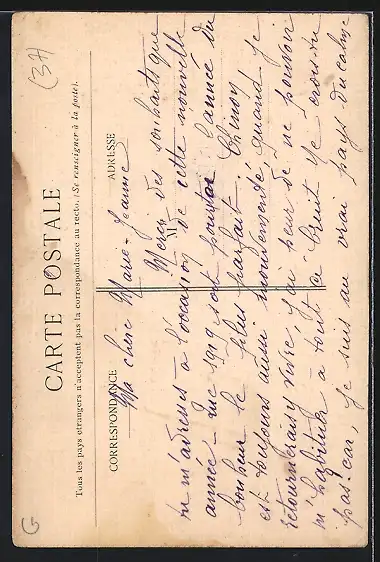 (37)
CARTE POSTALE
Tous les pays étrangers n'acceptent pas la correspondance au recto. (Se renseigner à la poste).
CORRESPONDANCE
ADRESSE
M
Ma chère Marie-Jeanne
Merci des souhaits que
tu m'adresses à l'occasion de cette nouvelle
année. Que 1919 soit pour toi l'année du
bonheur le plus parfait. Chinon
est toujours aussi mouvementé quand je
retournerai y vivre, j'ai peur de ne pouvoir
m'habituer à tout ce bruit. Je crois tu
pas? car, je suis au vrai pays du calme
G